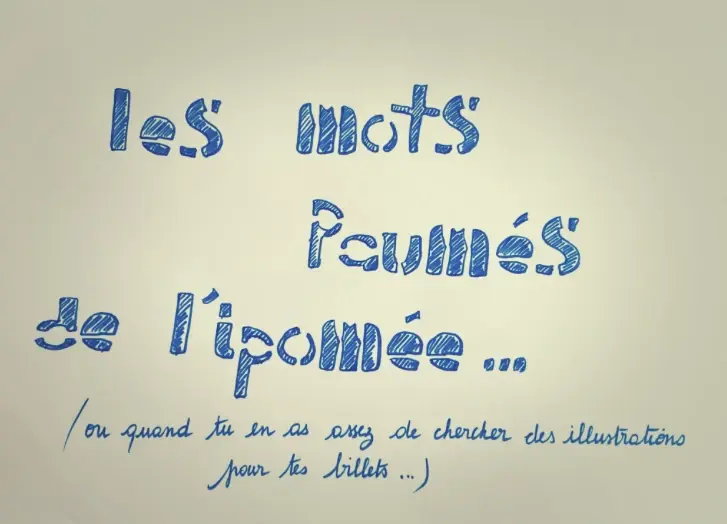 les mots
Paumés
de l'ipomée...
(ou quand tu en as assez de chercher des illustrations
pour tes billets...)